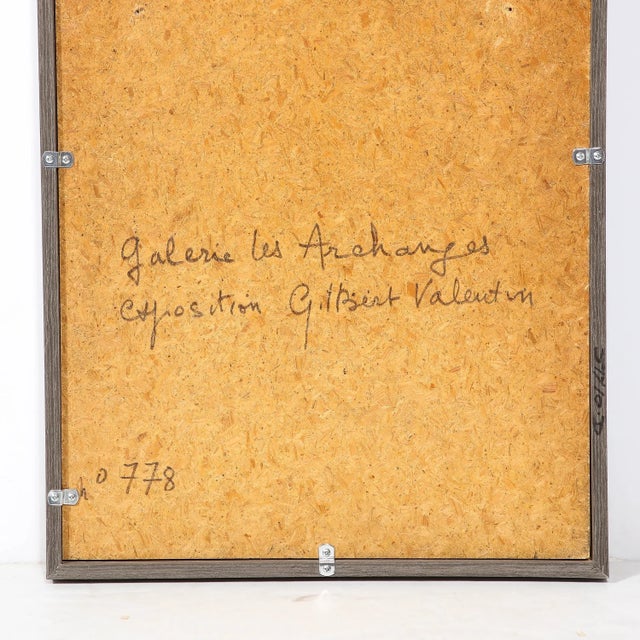 Galerie les Archanges
exposition Gilbert Valentin
n° 778